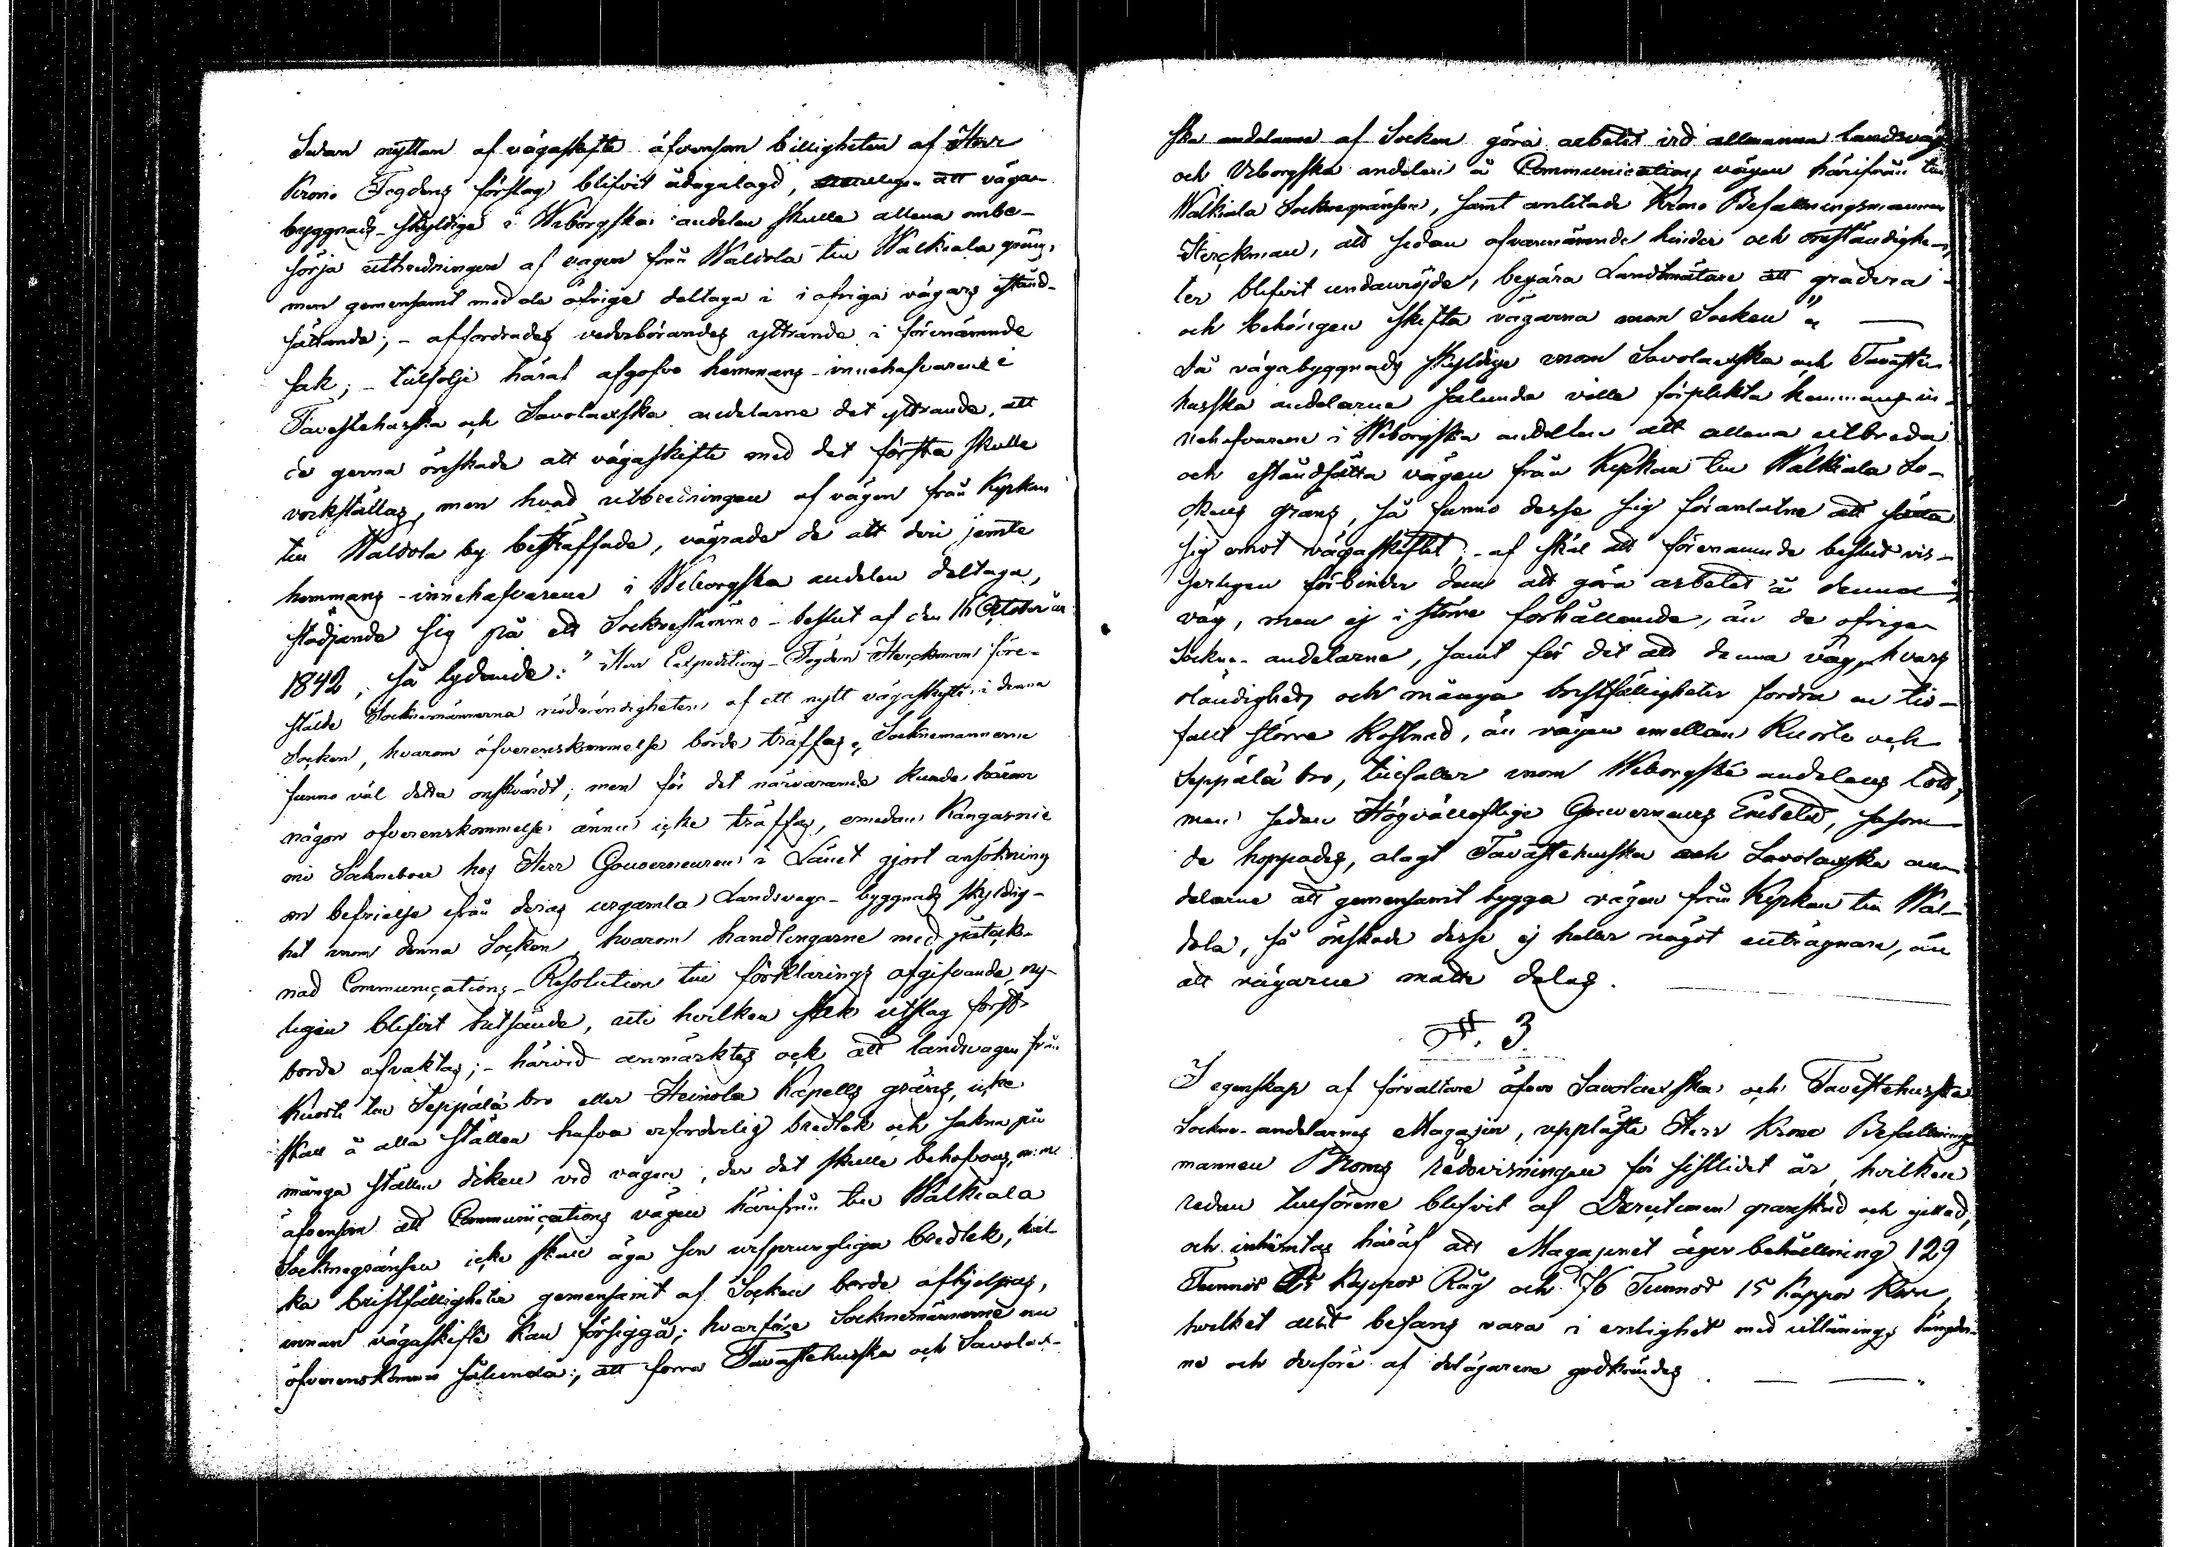 Sedan nyttan af vägaskifte äfvensom billigheten af Herr
Krono Fogdens förslag blifvit ådagalagd, att väga-
byggnads-skyldige i Wiborgska andelen skulle allena ombe-
sörja utbredningen af vägen från Waldola till Walkiala gräns,
men gemensamt med de öfrige deltaga i öfriga vägars istånd-
sättande; - affordrades vederbörandes yttrande i förenämnde
sak; - tillfölje häraf afgofvo hemmans-innehafvarene i
Tavastehuska och Savolaxska andelarne det yttrande, att
de gerna önskade att vägaskifte med det första skulle
verkställas, men hvad utbredningen af vägen från Kyrkan
till Waldola by beträffade, vägrade de att deri jemte
hemmans-innehafvarene i Wiborgska andelen deltaga,
stödjande sig på ett Sockenstämmo-beslut af den 16 October
1842, så lydande: "Herr Expeditions-Fogden Herckman före-
stälde Socknemännerna nödvändigheten af ett nytt vägaskifte i denna
Socken, hvarom öfverenskommelse borde träffas, Socknemännerne
funno väl detta önskvärdt; men för det närvarande kunde härom
någon öfverenskommelse ännu icke träffas, emedan Kangasnie
mi Sockneboer hos Herr Gouverneuren i Länet gjort ansökning
om befrielse från deras urgamla Landsvägs-byggnads skyldig-
het inom denna Socken hvarom handlingarne med påteck-
nad Communications-Resolution till förklarings afgifvande ny-
ligen blifvit hitsände, uti hvilken sak utslag först
borde afvaktas; - härvid anmärktes ock att landsvägen från
Kuorti till Seppälä bro eller Heinola Kapells gräns, icke
skall å alla ställen hafva erforderlig bredlek och sakna på
många ställen diken vid vägen, der det skulle behöfvas,
äfvensom att Communications vägen härifrån till Walkiala
Socknegränsen icke skall äga sin ursprungliga bredlek, hvil-
ka bristfälligheter gemensamt af Socken borde afhjelpas,
innan vägaskifte kan försiggå; hvarföre Socknemännerne nu
öfverenskommo sålunda, att förra Tavastehuska och Savolax-
ska andelarne af Socken göra arbetet vid allmänna landsväg
och Wiborgska andelen å Communications vägen härifrån till
Walkiala Socknegränsen, samt anlitade Krono Befallningsmannen
Herckman, att sedan ofvannämnde hinder och omständighe-
ter blifvit undanröjde, begära Landtmätare att gradera
och behörigen skifta vägarna inom Socken"
Då vägabyggnads skyldige inom Savolaxska och Tavaste-
huska andelarne sålunda ville förplikta hemmans in-
nehafvarene i Wiborgska andelen att allena utbreda
och iståndsätta vägen från Kyrkan till Walkiala So-
ckens gräns, så funno desse sig föranlåtne att sätta
sig emot vägaskiftet; - af skäl att förenämnde beslut vis-
serligen förbinder dem att göra arbetet å denna
väg, men ej i större förhållande, än de öfriga
Sockne-andelarne, samt för det att denna väg, hvars
oländighet och många bristfälligheter fordra en tio-
falt större kostnad, än vägen emellan Kuorti och
Seppälä bro, tillfaller inom Wiborgska andelens lott,
men sedan Högvälloflige Gouverneurs Embetet, såsom
de hoppades, alagt Tavastehuska och Savolaxska an-
delarne att gemensamt bygga vägen från Kyrkan till Wal-
dola, så önskade desse ej heller något enträgnare, än
att vägarne måtte delas.
N. 3.
I egenskap af förvaltare öfver Savolaxska och Tavastehuska
Sockne-andelarnes Magasin, uppläste Herr Krono Befallnings
mannen Broms redovisningen för sistlidet år, hvilken
redan tillförene blifvit af Directionen granskad och gillad,
och inhämtas häraf att Magasinet äger behållning 129
Tunnor Kappor Råg och 76 Tunnor 15 Kappor Korn,
hvilket allt befans vara i enlighet med utlånings längder-
ne och derföre af delägarene godkändes.